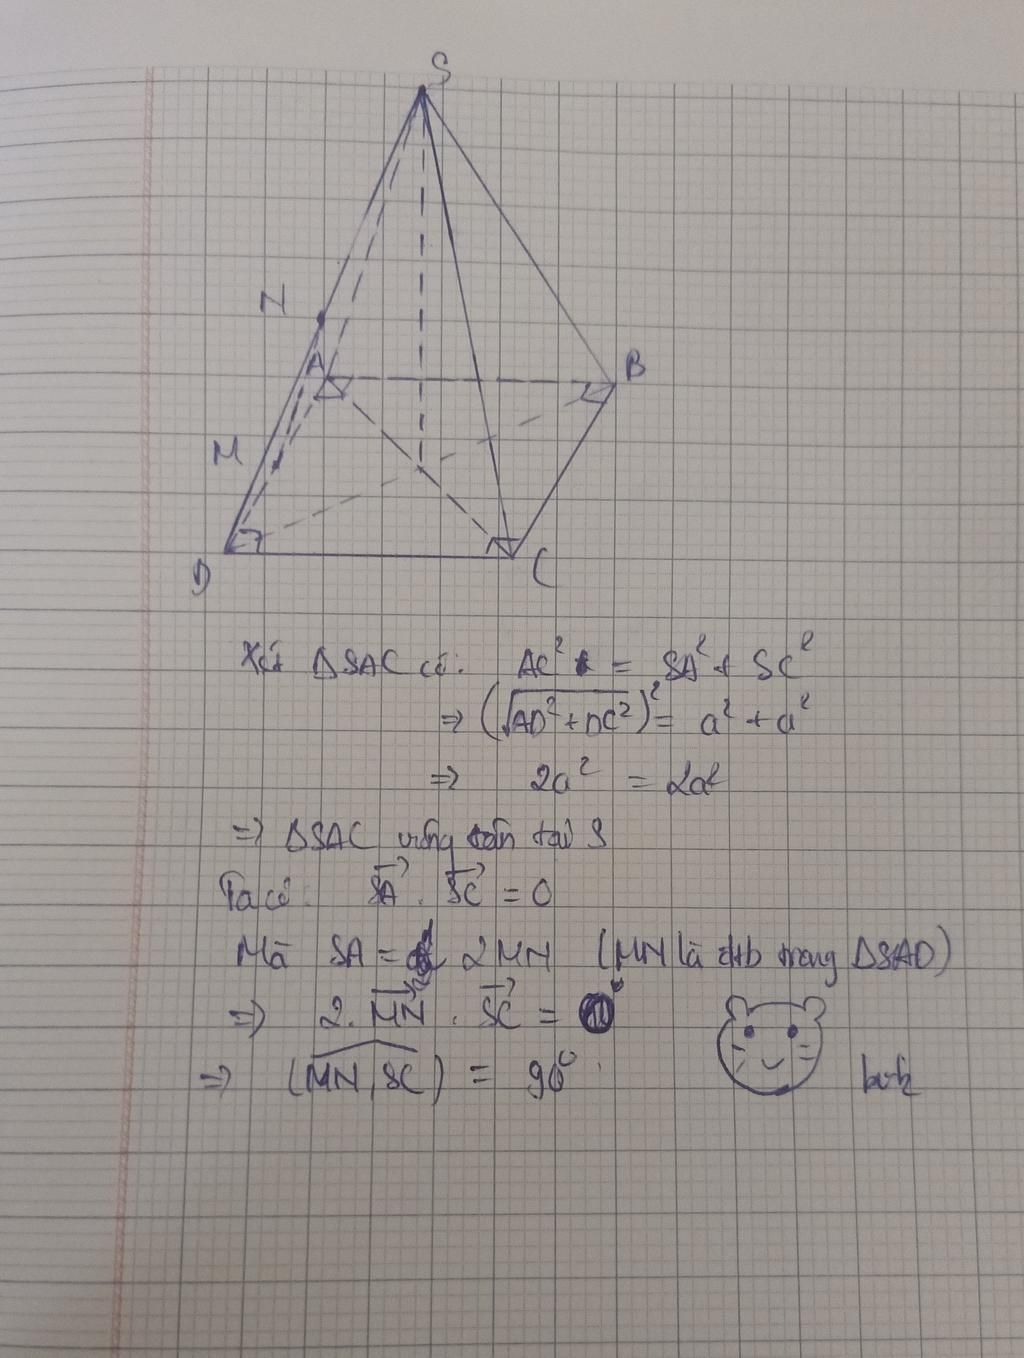 S
N
A
B
M
D
C
Xét ΔSAC có: AC² = SA² + SC²
=> (√AD² + DC²)² = a² + a²
=> 2a² = 2a²
=> ΔSAC vuông cân tại S
Ta có: SA⃗ . SC⃗ = 0
Mà SA = 2MN (MN là đtb trong ΔSAD)
=> 2. MN⃗ . SC⃗ =
=> (MN, SC) = 90°